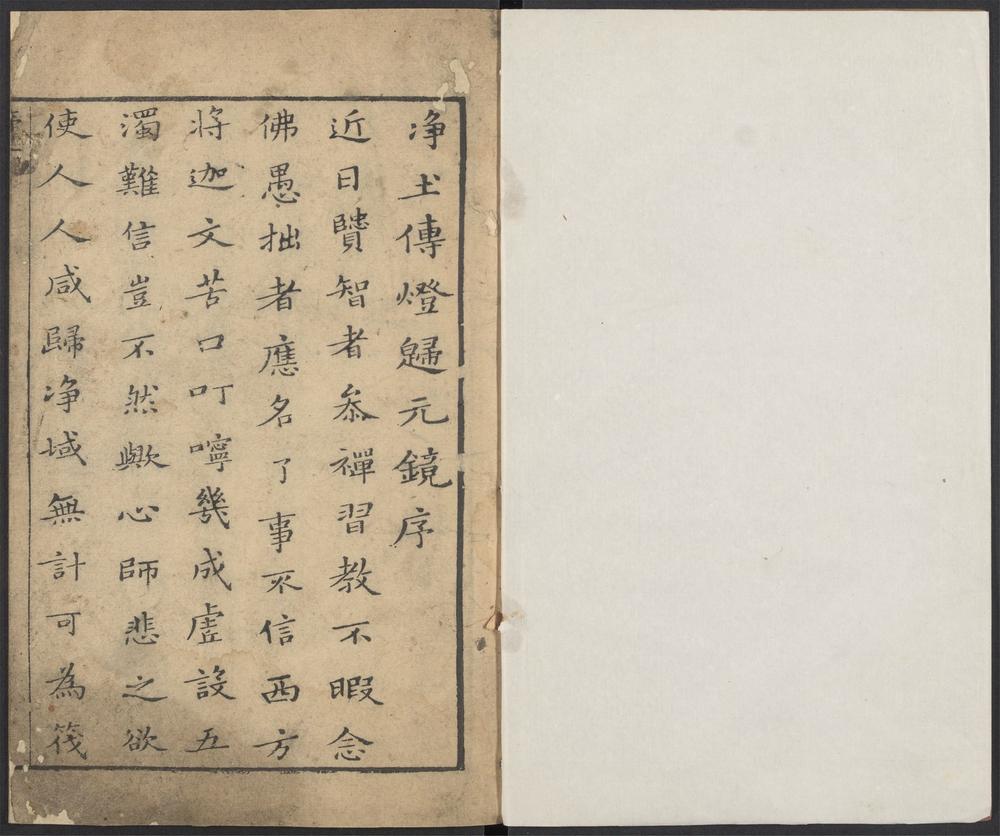 净土傳燈歸元鏡序
近日贒智者叅禪習教不暇念
佛愚拙者應名了事不信西方
将迦文苦口叮嚀幾成虗設五
濁難信豈不然歟心師悲之欲
使人人咸歸净域無計可為筏